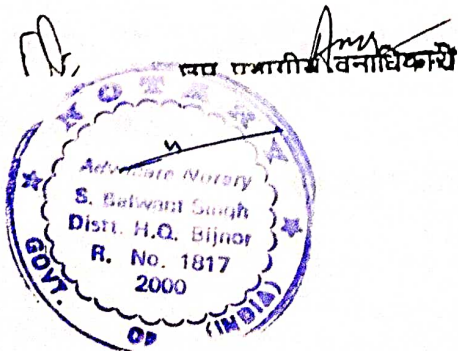 उप प्रभागीय वनाधिकारी
NOTARY
Advocate Notary
S. Balwant Singh
Distt. H.Q. Bijnor
R. No. 1817
2000
GOVT. OF (INDIA)